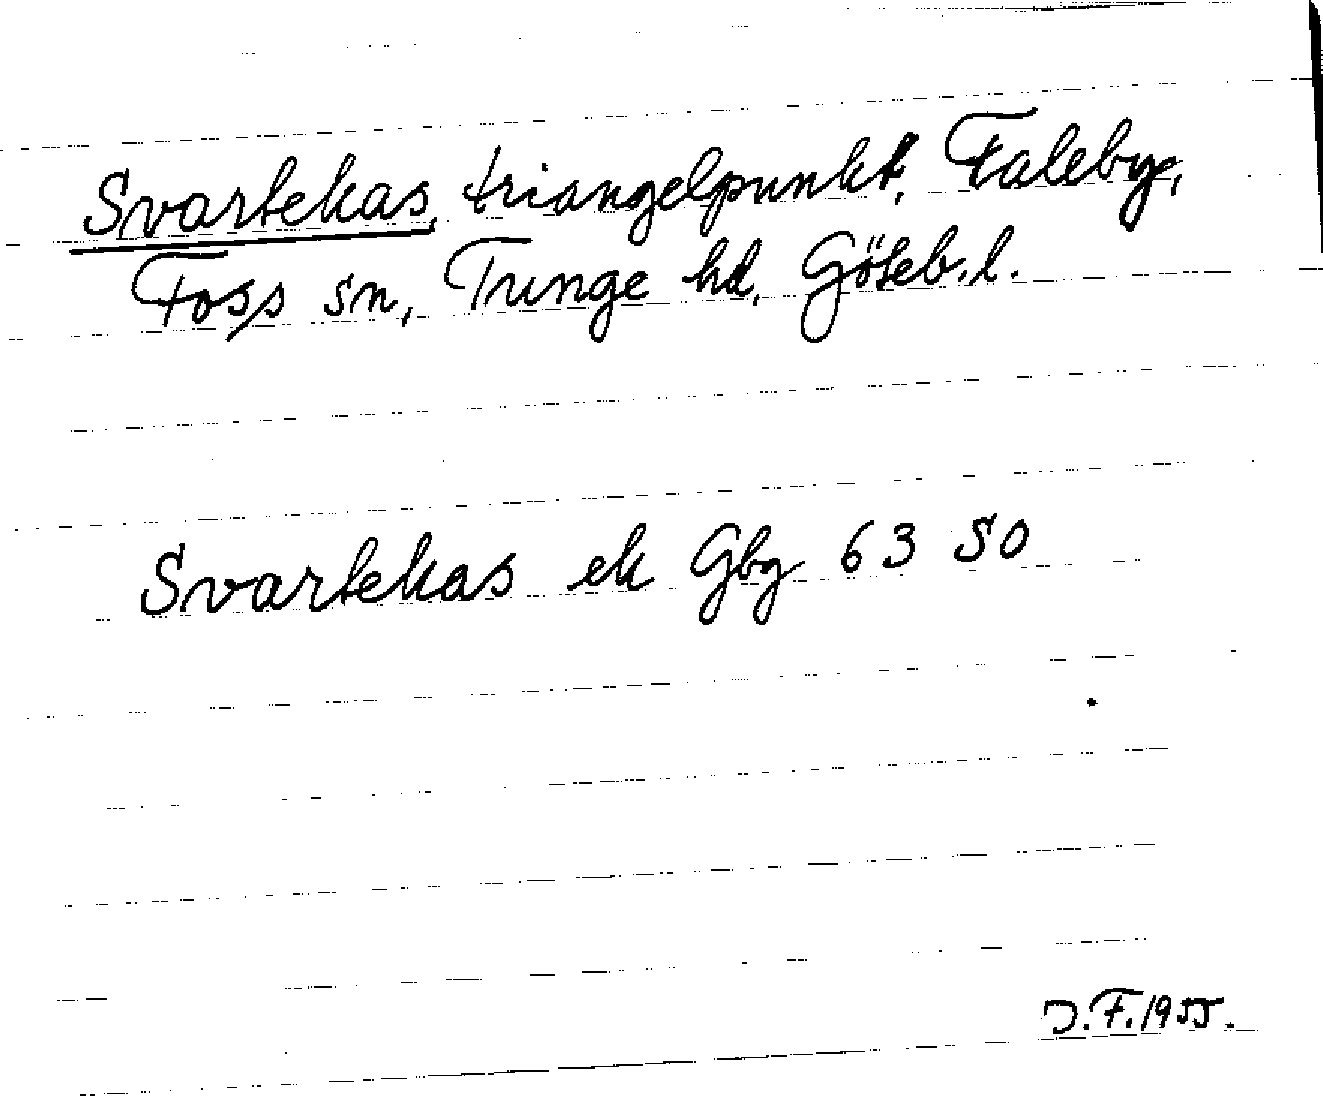 Svartekas, triangelpunkt, Faleby,
Foss sn, Tunge hd, Göteb. l.
Svartekas ek Gbg 63 SO
J.F. 1955.